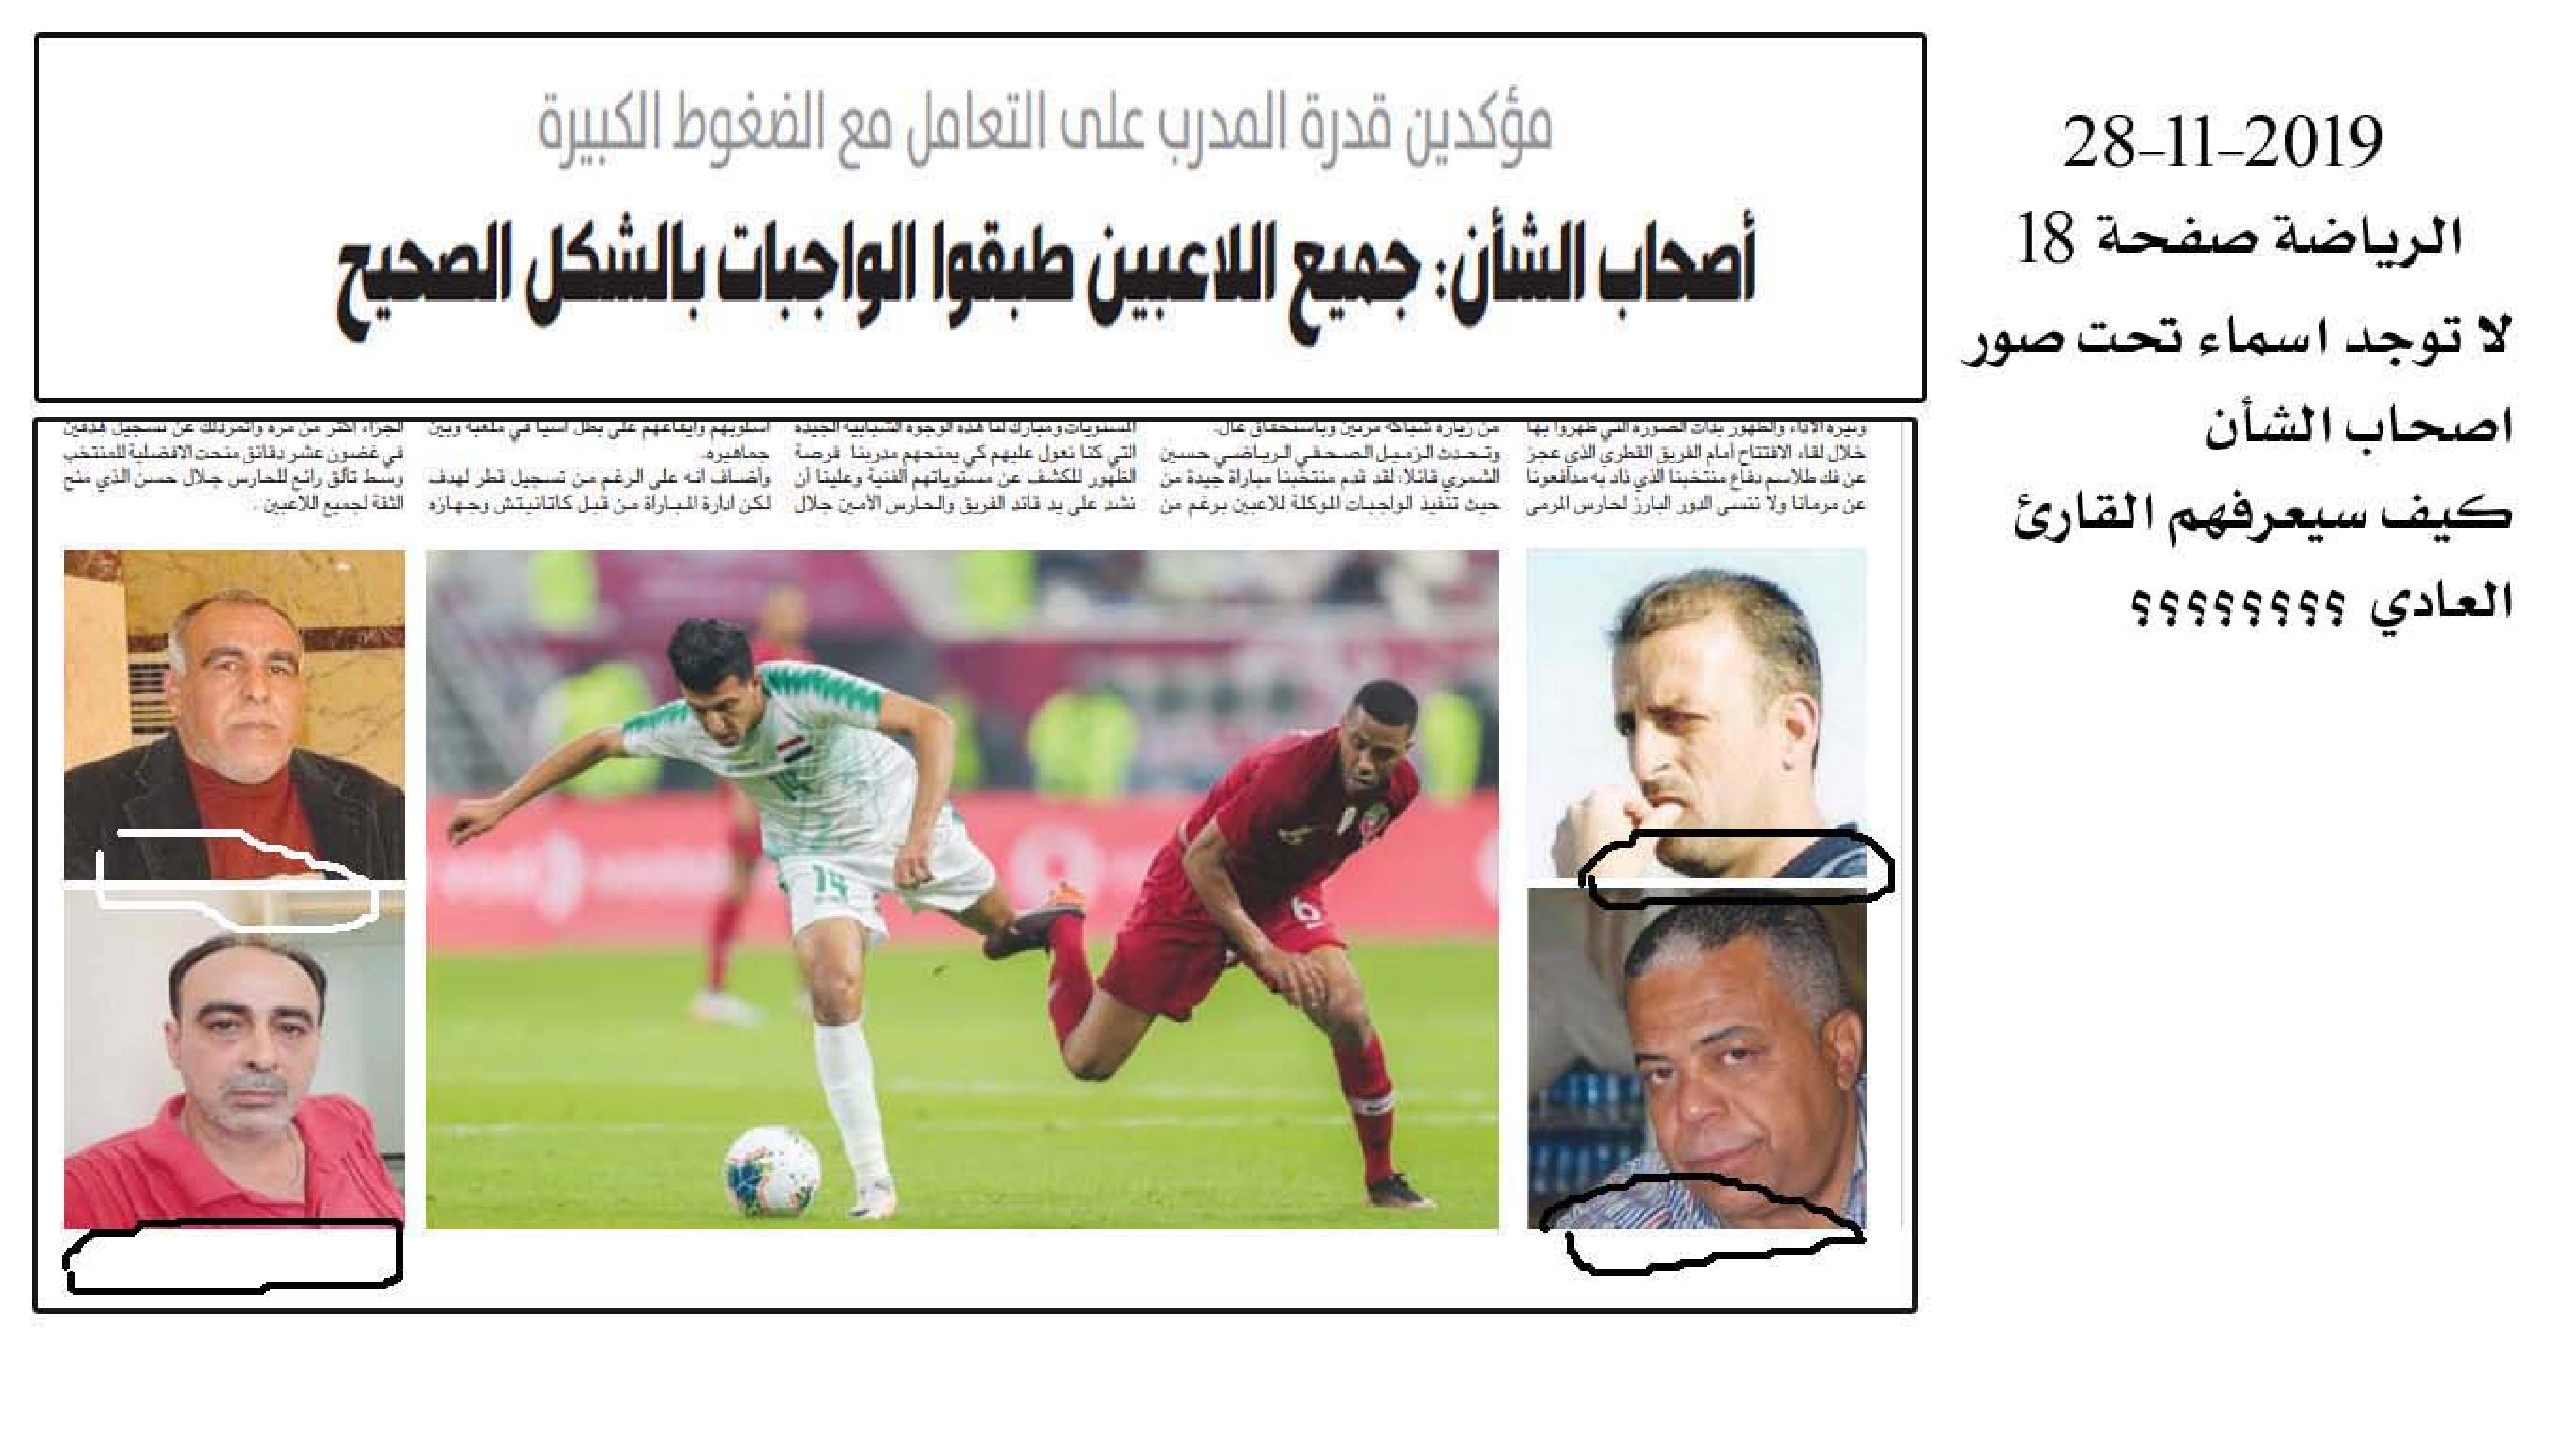 مؤكدين قدرة المدرب على التعامل مع الضغوط الكبيرة
أصحاب الشأن: جميع اللاعبين طبقوا الواجبات بالشكل الصحيح
28-11-2019
الرياضة صفحة 18
لا توجد اسماء تحت صور
اصحاب الشأن
كيف سيعرفهم القارئ
العادي ؟؟؟؟؟؟؟؟
وتيرة الاداء والظهور بذات الصورة التي ظهروا بها
خلال لقاء الافتتاح أمام الفريق القطري الذي عجز
عن فك طلاسم دفاع منتخبنا الذي ذاد به مدافعونا
عن مرمانا ولا ننسى الدور البارز لحارس المرمى
من زيارة شباكه مرتين وباستحقاق عال.
وتحدث الزميل الصحفي الرياضي حسين
الشمري قائلا: لقد قدم منتخبنا مباراة جيدة من
حيث تنفيذ الواجبات الموكلة للاعبين برغم من
المستويات ومبارك لنا هذه الوجوه الشبابية الجيدة
التي كنا نعول عليهم كي يمنحهم مدربنا فرصة
الظهور للكشف عن مستوياتهم الفنية وعلينا أن
نشد على يد قائد الفريق والحارس الأمين جلال
اسلوبهم وايقاعهم على بطل آسيا في ملعبه وبين
جماهيره.
وأضاف انه على الرغم من تسجيل قطر لهدف
لكن ادارة المباراة من قبل كاتانيتش وجهازه
الجزاء اكثر من مرة واثمر ذلك عن تسجيل هدفين
في غضون عشر دقائق منحت الافضلية للمنتخب
وسط تألق رائع للحارس جلال حسن الذي منح
الثقة لجميع اللاعبين .
14
6